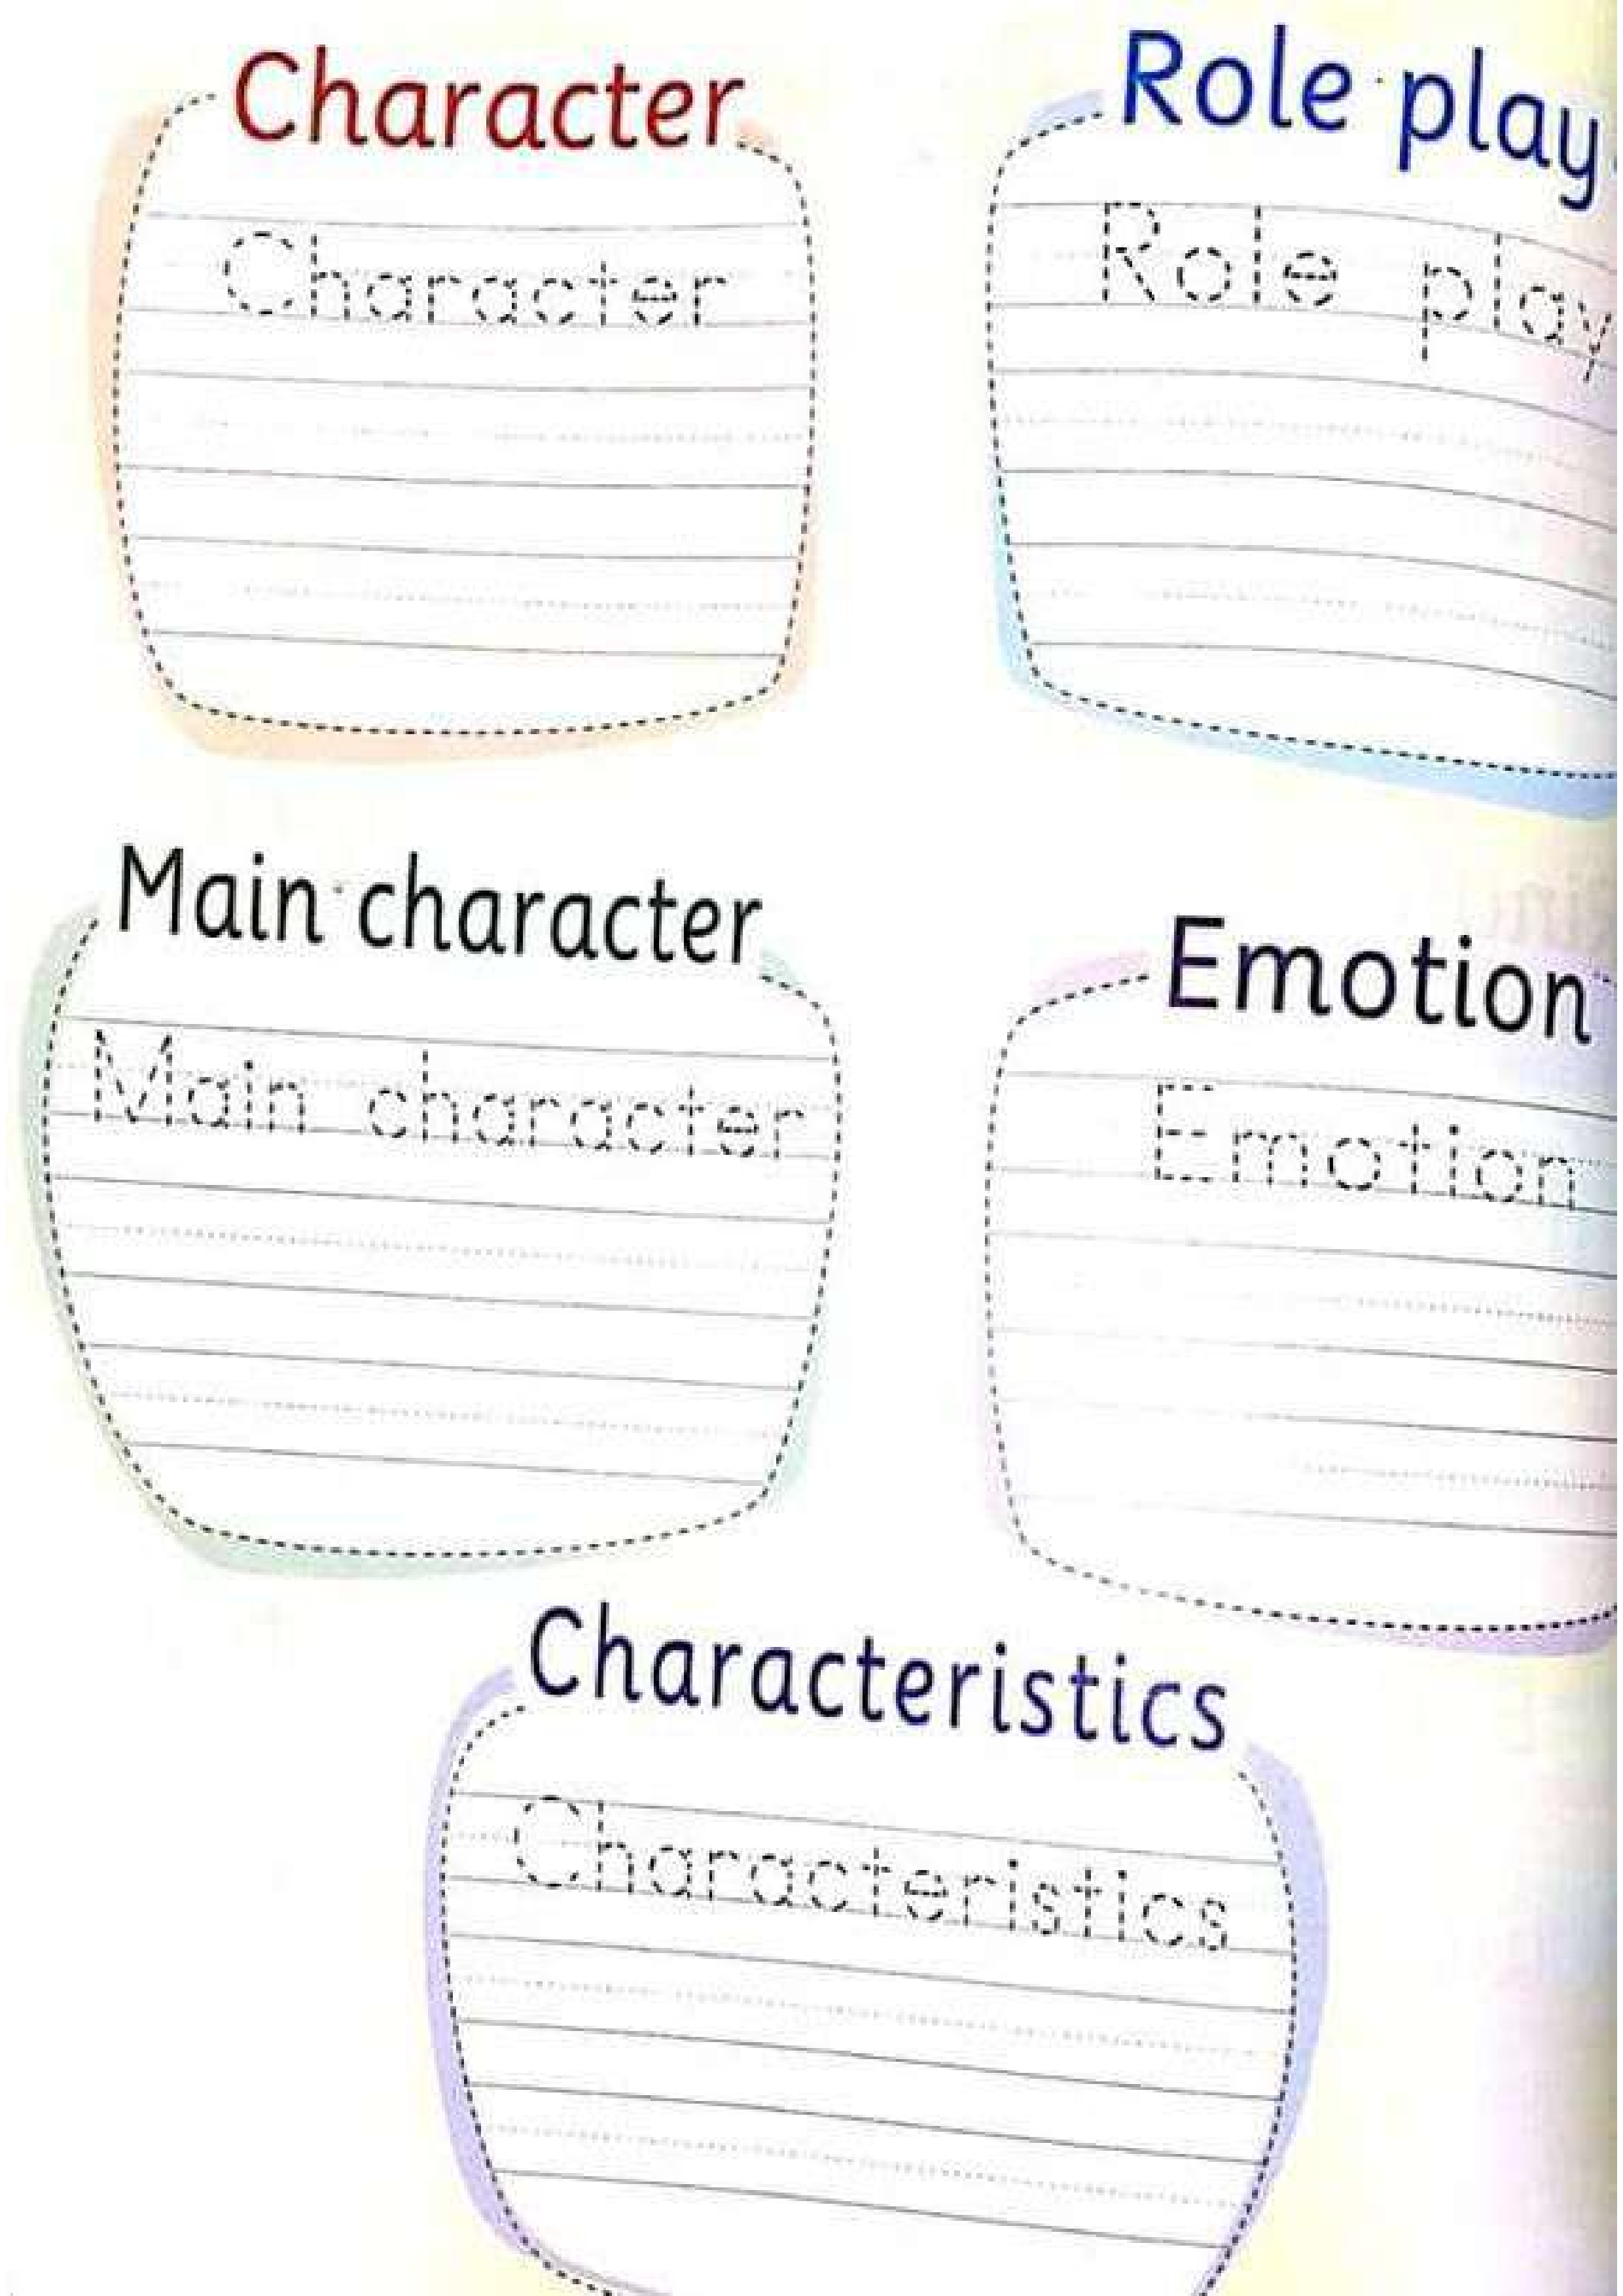 Character
Character
Role play
Role play
Main character
Main character
Emotion
Emotion
Characteristics
Characteristics